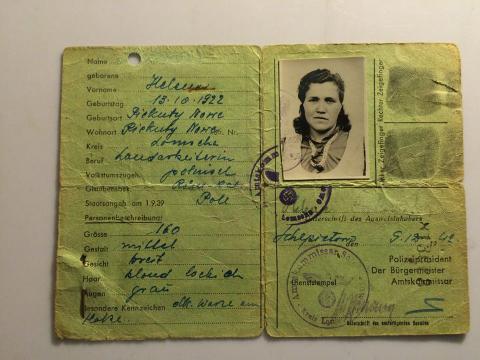 Name
geborene
Vorname Helena
Geburtstag 13.10.1922
Geburtsort Piekuty Nowe
Wohnort Piekuty Nowe Nr.
Kreis Lomscha
Beruf Landarbeiterin
Volkstumszugeh. polnisch
Glaubensbek. Röm. Kat.
Staatsangeh. am 1.9.39 Pole
Personenbeschreibung:
Grösse 160
Gestalt mittel
Gesicht breit
Haar blond lockich
Augen grau
Besondere Kennzeichen
Rechter Zeigefinger
Zeigefinger
Unterschrift des Ausweisinhabers
den
Polizeipräsident
Der Bürgermeister
Amtskommissar
Dienststempel
Amtskommissar
Unterschrift des ausfertigenden Beamten